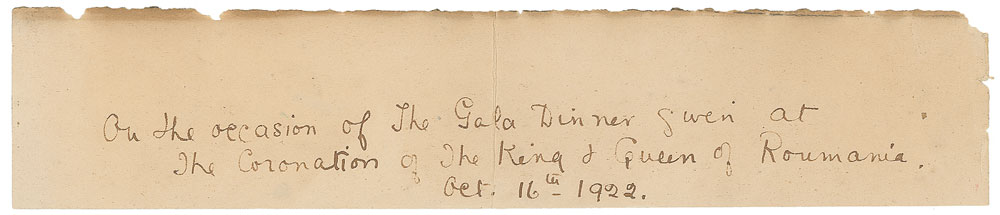 On the occasion of The Gala Dinner given at
The Coronation of The King & Queen of Roumania.
Oct. 16th - 1922.